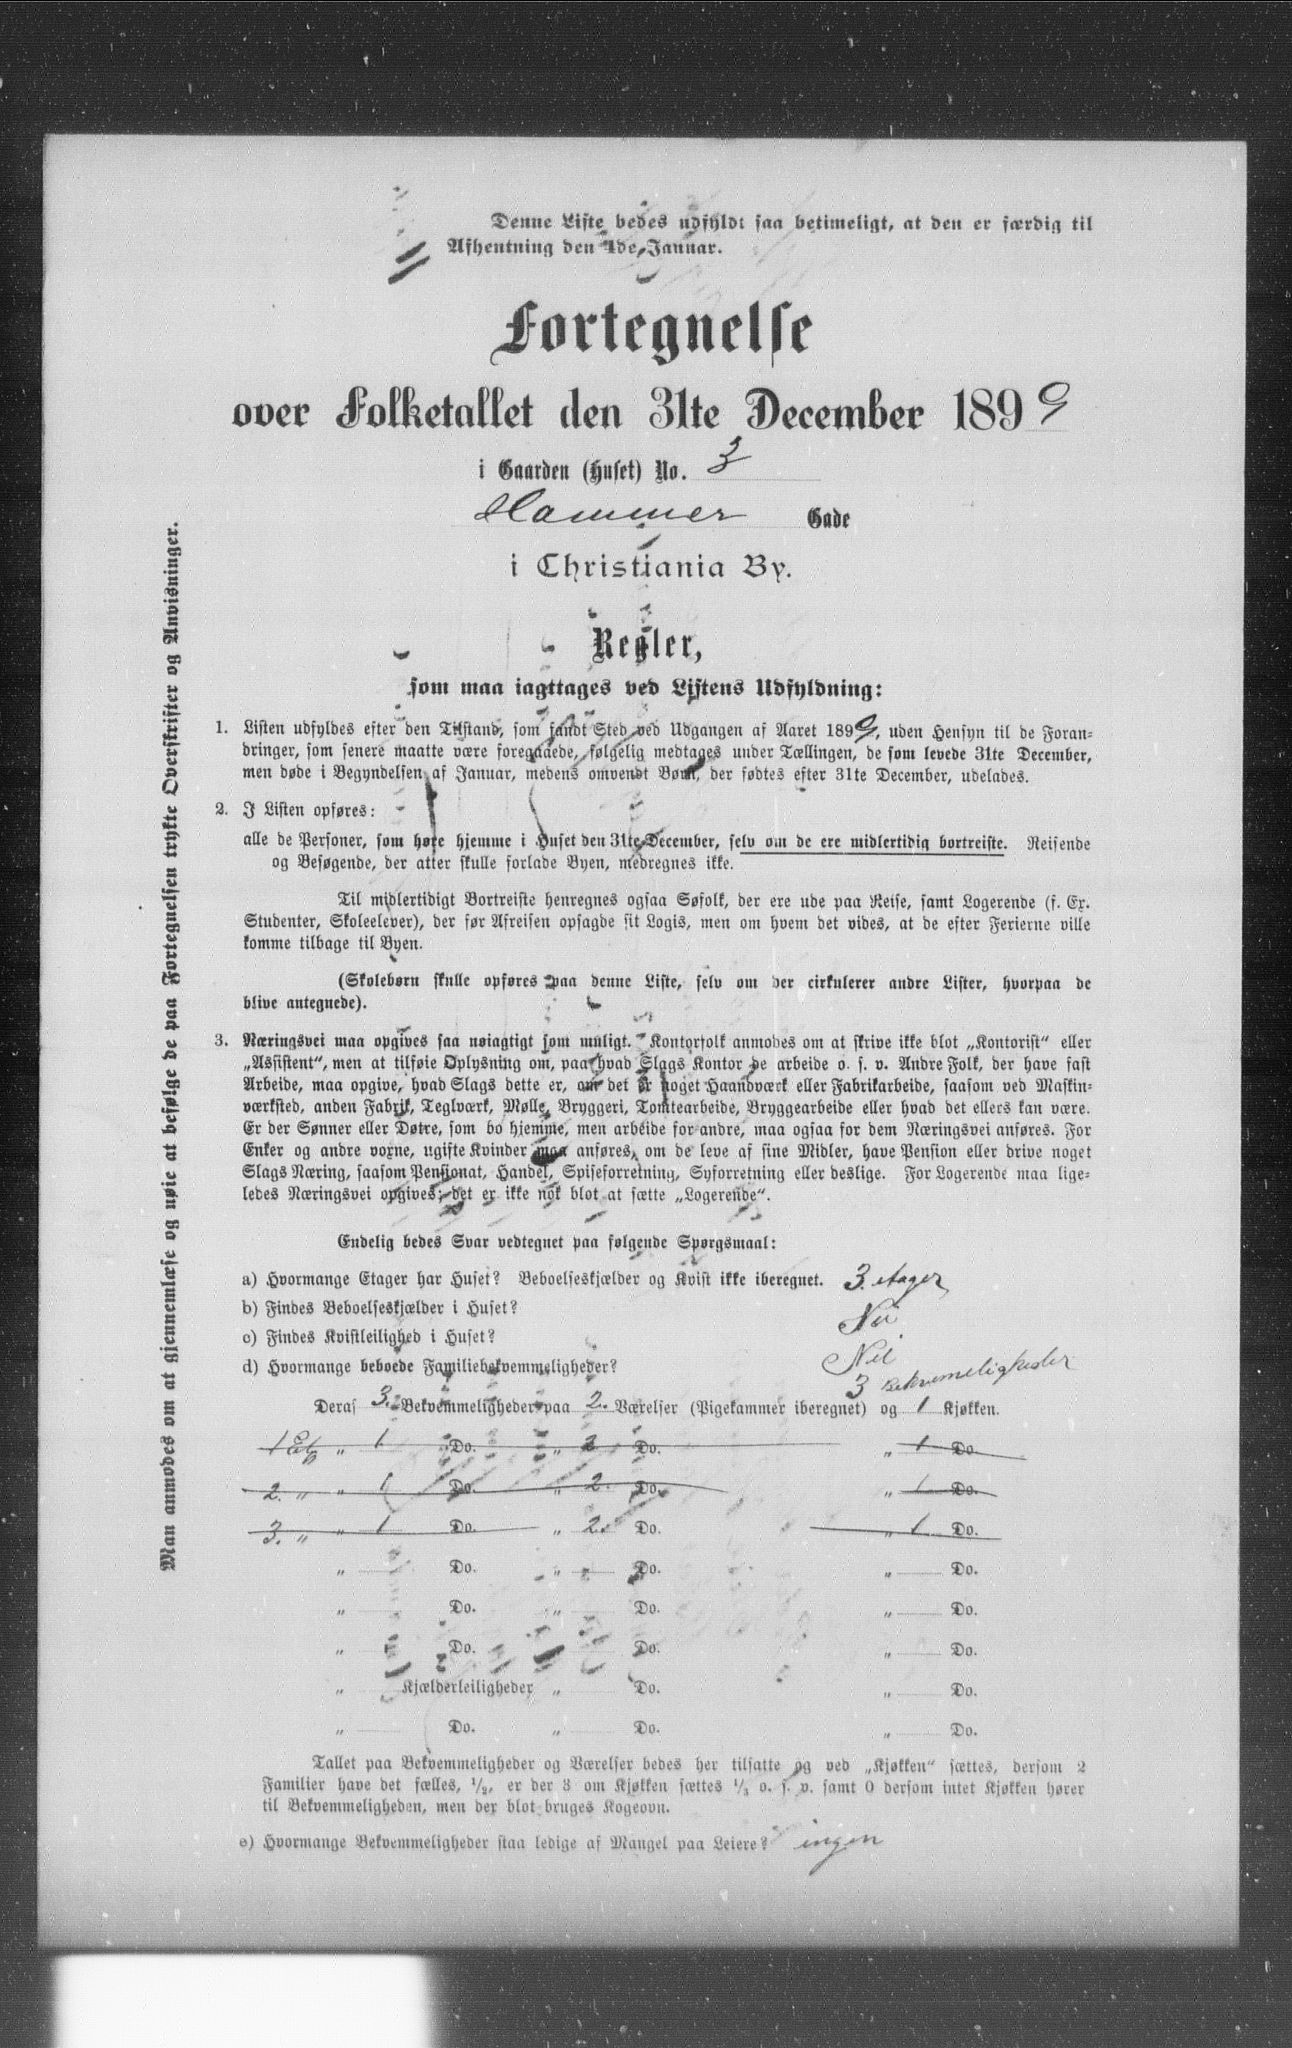 Denne Liste bedes udfyldt saa betimeligt, at den er færdig til
Afhentning den 4de Januar.
Fortegnelse
over Folketallet den 31te December 1899
i Gaarden (Huset) No. 3
Hammer Gade
i Christiania By.
Regler,
som maa iagttages ved Listens Udfyldning:
1. Listen udfyldes efter den Tilstand, som fandt Sted ved Udgangen af Aaret 1899, uden Hensyn til de Foran-
dringer, som senere maatte være foregaaede, følgelig medtages under Tællingen, de som levede 31te December,
men døde i Begyndelsen af Januar, medens omvendt Børn, der fødtes efter 31te December, udelades.
2. I Listen opføres:
alle de Personer, som høre hjemme i Huset den 31te December, selv om de ere midlertidig bortreiste. Reisende
og Besøgende, der atter skulle forlade Byen, medregnes ikke.
Til midlertidigt Bortreiste henregnes ogsaa Søfolk, der ere ude paa Reise, samt Logerende (f. Ex.
Studenter, Skoleelever), der før Afreisen opsagde sit Logis, men om hvem det vides, at de efter Ferierne ville
komme tilbage til Byen.
(Skolebørn skulle opføres paa denne Liste, selv om der cirkulerer andre Lister, hvorpaa de
blive antegnede).
3. Næringsvei maa opgives saa nøiagtigt som muligt. Kontorfolk anmodes om at skrive ikke blot „Kontorist“ eller
„Assistent“, men at tilføie Oplysning om, paa hvad Slags Kontor de arbeide o. s. v. Andre Folk, der have fast
Arbeide, maa opgive, hvad Slags dette er, om det er noget Haandværk eller Fabrikarbeide, saasom ved Maskin-
værksted, anden Fabrik, Teglværk, Mølle, Bryggeri, Tomtearbeide, Bryggearbeide eller hvad det ellers kan være.
Er der Sønner eller Døtre, som bo hjemme, men arbeide for andre, maa ogsaa for dem Næringsvei anføres. For
Enker og andre voxne, ugifte Kvinder maa anføres, om de leve af sine Midler, have Pension eller drive noget
Slags Næring, saasom Pensionat, Handel, Spiseforretning, Syforretning eller deslige. For Logerende maa lige-
ledes Næringsvei opgives; det er ikke nok blot at sætte „Logerende“.
Endelig bedes Svar vedtegnet paa følgende Spørgsmaal:
a) Hvormange Etager har Huset? Beboelseskjælder og Kvist ikke iberegnet. 3. etager
b) Findes Beboelseskjælder i Huset? Nei
c) Findes Kvistleilighed i Huset? Nei
d) Hvormange beboede Familiebekvemmeligheder? 3 Bekvemeligheder
Deraf 3. Bekvemmeligheder paa 2. Værelser (Pigekammer iberegnet) og 1 Kjøkken.
1 Etg „ 1 Do. „ 2 Do. „ 1 Do.
2. „ „ 1 Do. „ 2. Do. „ 1 Do.
3. „ „ 1 Do. „ 2. Do. „ 1 Do.
„ Do. „ Do. „ Do.
„ Do. „ Do. „ Do.
„ Do. Do. „ Do.
„ Kjælderleiligheder „ Do. „ Do.
„ Do. „ Do. „ Do.
Tallet paa Bekvemmeligheder og Værelser bedes her tilsatte og ved „Kjøkken“ sættes, dersom 2
Familier have det fælles, 1/2, er der 3 om Kjøkken sættes 1/3 o. s. v. samt 0 dersom intet Kjøkken hører
til Bekvemmeligheden, men der blot bruges Kogeovn.
e) Hvormange Bekvemmeligheder staa ledige af Mangel paa Leiere? ingen
Man anmodes om at gjennemlæse og nøie at befølge de paa Fortegnelsen trykte Overskrifter og Anvisninger.